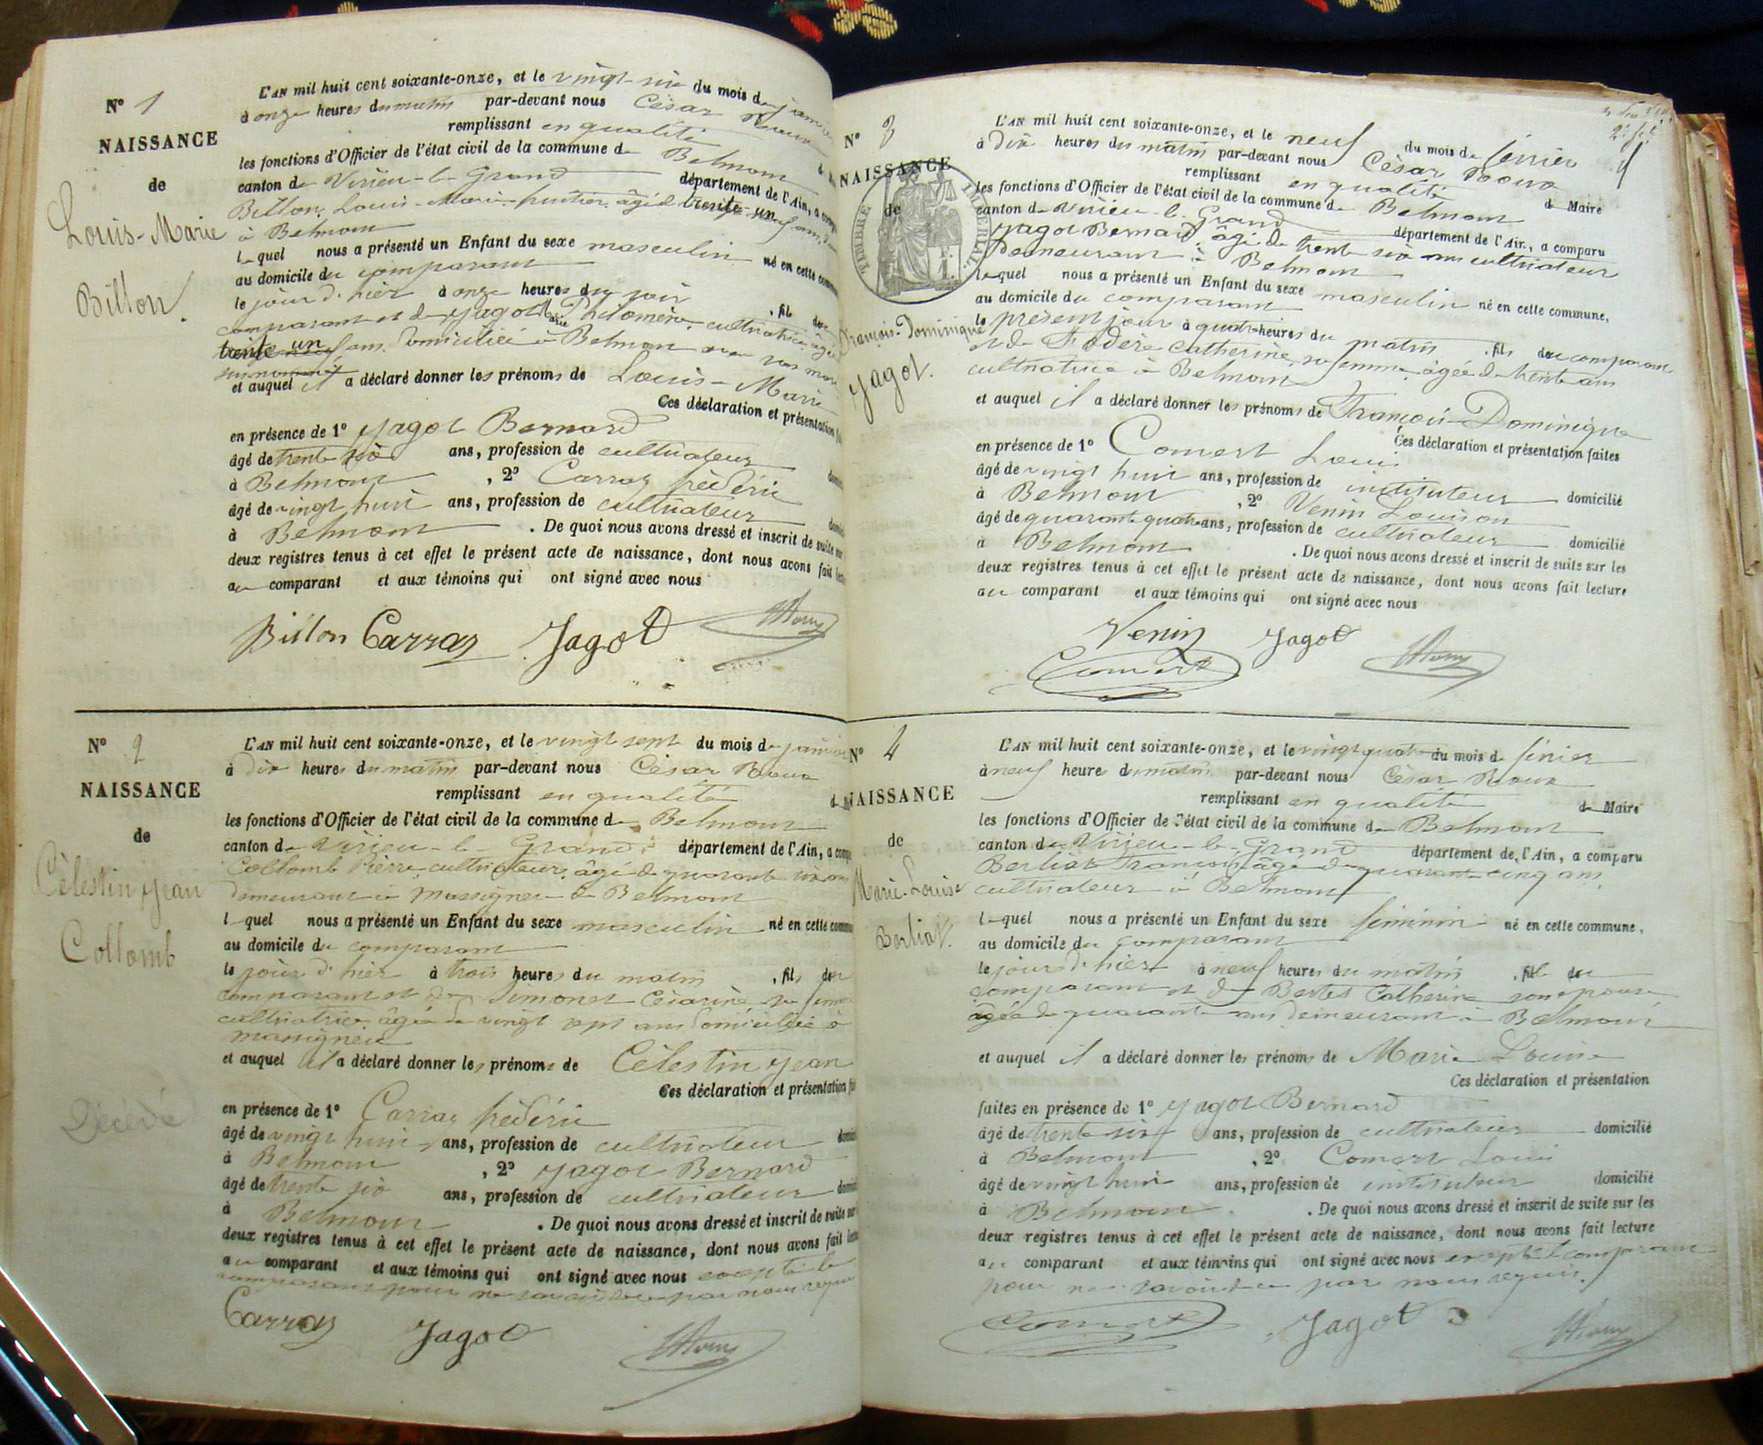 N° 1
NAISSANCE
de
Louis-Marie
Billon.
L'AN mil huit cent soixante-onze, et le vingt-six du mois de janvier
à onze heures du matin par-devant nous César Roux
remplissant en qualité
les fonctions d'Officier de l'état civil de la commune de Belmont
canton de Virieu-le-Grand département de l'Ain, a comparu
Billon, Louis-Marie âgé de trente-un ans
à Belmont
lequel nous a présenté un Enfant du sexe masculin né en cette commune
au domicile du comparant
le jour d'hier à onze heures du soir , fils du
comparant et de Jagot Marie Philomène, cultivatrice âgée
trente un ans domiciliée à Belmont
et auquel il a déclaré donner les prénoms de Louis-Marie
Ces déclaration et présentation
en présence de 1° Jagot Bernard
âgé de trente six ans, profession de cultivateur
à Belmont , 2° Carraz frédéric
âgé de vingt huit ans, profession de cultivateur
à Belmont . De quoi nous avons dressé et inscrit de suite sur
deux registres tenus à cet effet le présent acte de naissance, dont nous avons fait lecture
au comparant et aux témoins qui ont signé avec nous
Billon Carraz Jagot
N° 2
NAISSANCE
de
Célestin Jean
Collomb
Décédé
L'AN mil huit cent soixante-onze, et le vingt sept du mois de janvier
à dix heures du matin par-devant nous César Roux
remplissant en qualité
les fonctions d'Officier de l'état civil de la commune de Belmont
canton de Virieu-le-Grand département de l'Ain, a comparu
Collomb Pierre, cultivateur, âgé de quarante ans
demeurant à Massignieu à Belmont
lequel nous a présenté un Enfant du sexe masculin né en cette commune
au domicile du comparant
le jour d'hier à trois heures du matin , fils du
comparant et de Simonet Césarine sa femme
cultivatrice âgée de vingt sept ans domiciliée à
Massignieu
et auquel il a déclaré donner les prénoms de Célestin Jean
Ces déclaration et présentation
en présence de 1° Carraz frédéric
âgé de vingt huit ans, profession de cultivateur
à Belmont , 2° Jagot Bernard
âgé de trente six ans, profession de cultivateur
à Belmont . De quoi nous avons dressé et inscrit de suite sur
deux registres tenus à cet effet le présent acte de naissance, dont nous avons fait lecture
au comparant et aux témoins qui ont signé avec nous excepté le
comparant pour ne savoir de ce par nous requis
Carraz Jagot
N° 3
NAISSANCE
de
TIMBRE IMPERIAL
François-Dominique
Jagot.
L'AN mil huit cent soixante-onze, et le neuf du mois de février
à dix heures du matin par-devant nous César Roux
remplissant en qualité de Maire
les fonctions d'Officier de l'état civil de la commune de Belmont
canton de Virieu-le-Grand département de l'Ain, a comparu
Jagot Bernard, âgé de trente six ans cultivateur
demeurant à Belmont
lequel nous a présenté un Enfant du sexe masculin né en cette commune,
au domicile du comparant
le présent jour à quatre heures du matin , fils du comparant
et de Fodere Catherine, sa femme, âgée de trente ans
cultivatrice à Belmont
et auquel il a déclaré donner les prénoms de François-Dominique
Ces déclaration et présentation faites
en présence de 1° Comert Louis
âgé de vingt huit ans, profession de instituteur domicilié
à Belmont , 2° Venin Louison
âgé de quarante quatre ans, profession de cultivateur domicilié
à Belmont . De quoi nous avons dressé et inscrit de suite sur les
deux registres tenus à cet effet le présent acte de naissance, dont nous avons fait lecture
au comparant et aux témoins qui ont signé avec nous
Venin Jagot
Comert
N° 4
NAISSANCE
de
Marie-Louise
Berliat.
L'AN mil huit cent soixante-onze, et le vingt quatre du mois de février
à neuf heures du matin par-devant nous César Roux
remplissant en qualité de Maire
les fonctions d'Officier de l'état civil de la commune de Belmont
canton de Virieu-le-Grand département de l'Ain, a comparu
Berliat François, âgé de quarante-cinq ans,
cultivateur à Belmont
lequel nous a présenté un Enfant du sexe féminin né en cette commune,
au domicile du comparant
le jour d'hier à neuf heures du matin , fille du
comparant et de Bertet Catherine son épouse
âgée de quarante ans demeurant à Belmont
et auquel il a déclaré donner les prénoms de Marie Louise
Ces déclaration et présentation
faites en présence de 1° Jagot Bernard
âgé de trente six ans, profession de cultivateur domicilié
à Belmont , 2° Comert Louis
âgé de vingt huit ans, profession de instituteur domicilié
à Belmont . De quoi nous avons dressé et inscrit de suite sur les
deux registres tenus à cet effet le présent acte de naissance, dont nous avons fait lecture
au comparant et aux témoins qui ont signé avec nous excepté le comparant
pour ne savoir de ce par nous requis.
Comert Jagot